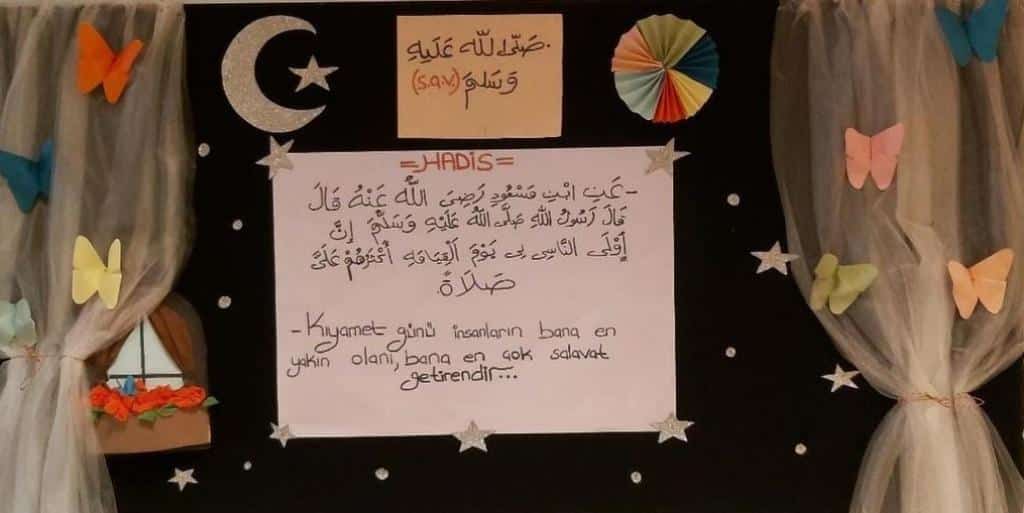 صَلَّى اللّٰه عَلَيْهِ
وَسَلَّمَ (s.a.v)
=HADİS=
-عَنِ ابْنِ مَسْعُودٍ رَضِيَ اللّٰهُ عَنْهُ قَالَ
قَالَ رَسُولُ اللّٰهِ صَلَّى اللّٰهُ عَلَيْهِ وَسَلَّمَ إِنَّ
أَوْلَى النَّاسِ بِي يَوْمَ الْقِيَامَةِ أَكْثَرُهُمْ عَلَىَّ
صَلَاةً
- Kıyamet günü insanların bana en
yakın olanı, bana en çok salavat
getirendir...